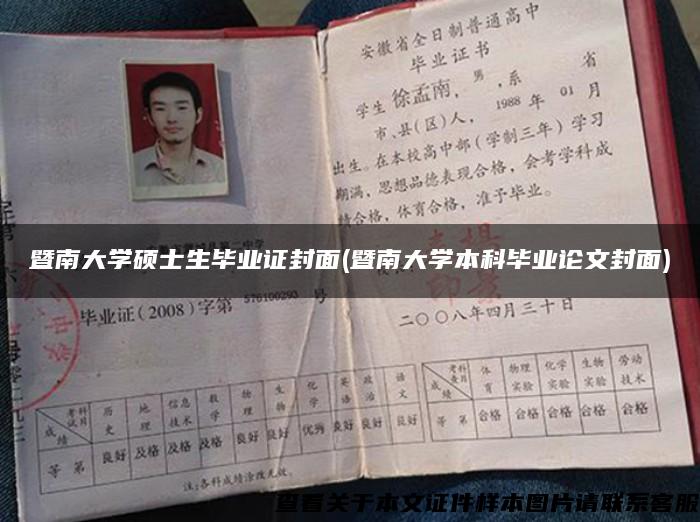 安徽省全日制普通高中
毕业证书
学生徐孟南,男,系 省
市、县(区)人,1988年01月
出生。在本校高中部(学制三年)学习
期满,思想品德表现合格,会考学科成
绩合格,体育合格,准予毕业。
暨南大学硕士生毕业证封面(暨南大学本科毕业论文封面)
毕业证(2008)字第576100293号
二〇〇八年四月三十日
考试科目 历史 地理 信息技术 数学 物理 生物 化学 英语 政治 语文
成绩
等第 良好 及格 及格 及格 良好 良好 优秀 良好 良好 良好
注:各科成绩涂改无效。
考查科目 体育 物理实验 化学实验 生物实验 劳动技术
成绩
等第 合格 合格 合格 合格 合格
查看关于本文证件样本图片请联系客服